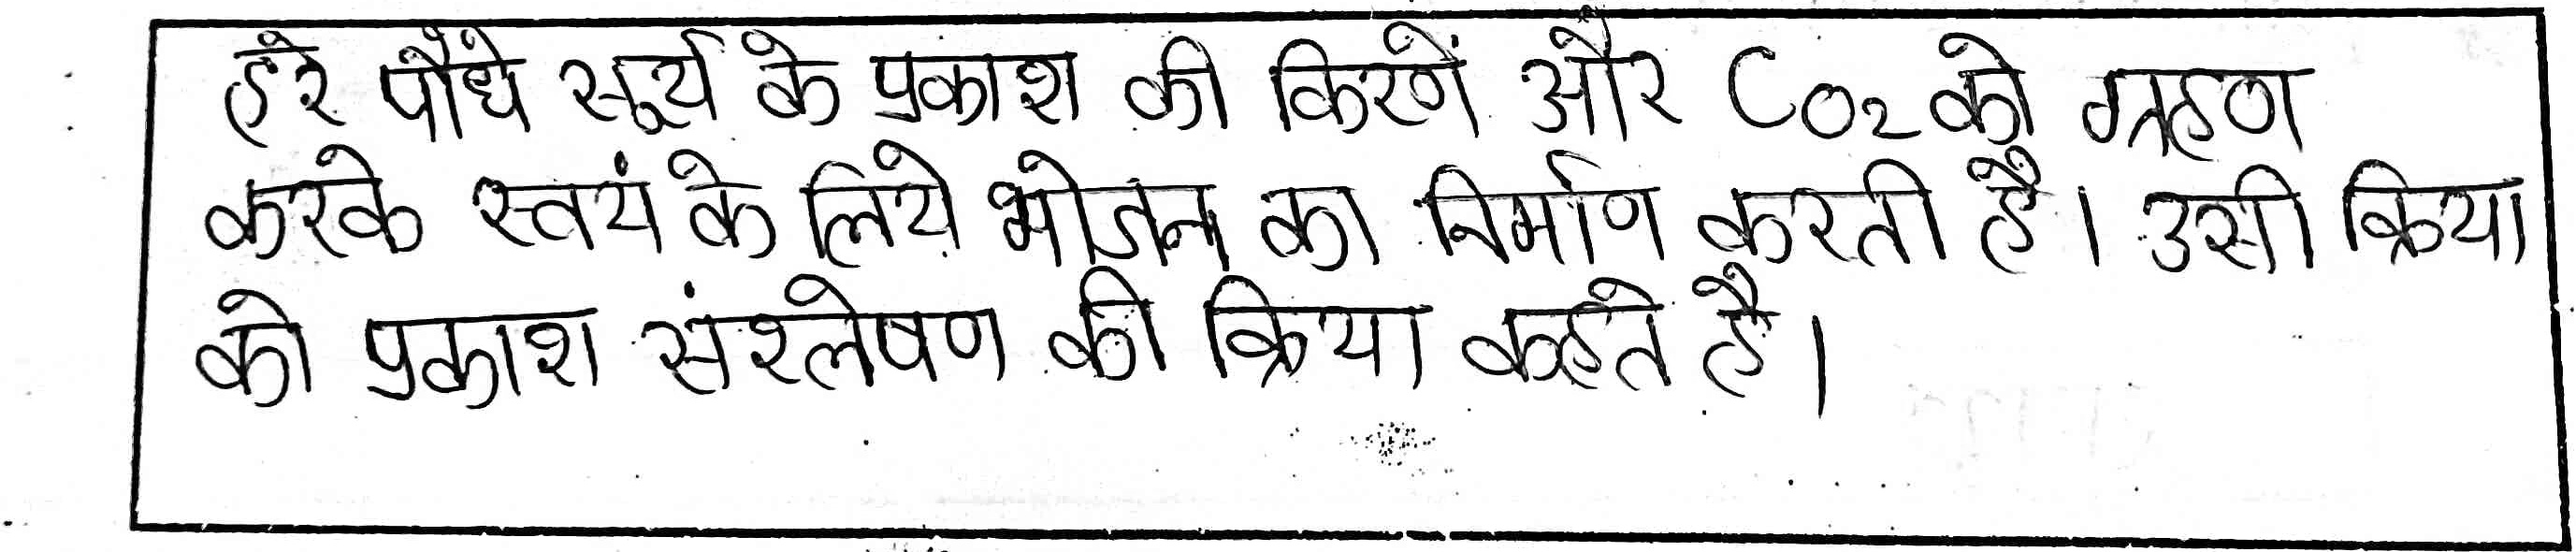 हरे पौधे सूर्य के प्रकाश की किरणें और CO₂ को ग्रहण
करके स्वयं के लिये भोजन का निर्माण करती है। उसी क्रिया
को प्रकाश संश्लेषण की क्रिया कहते है।